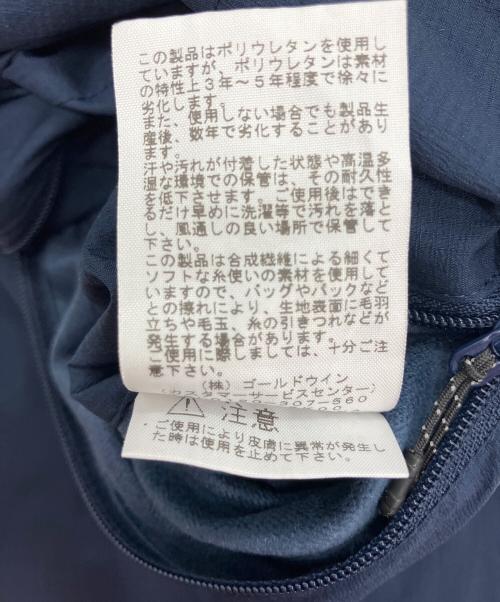 この製品はポリウレタンを使用し
ていますが、ポリウレタンは素材
の特性上3年～5年程度で徐々に
劣化します。
また、使用しない場合でも製品生
産後、数年で劣化することがあり
ます。
汗や汚れが付着した状態や高温多
湿な環境での保管は、その耐久性
を低下させます。ご使用後はでき
るだけ早めに洗濯等で汚れを落と
し、風通しの良い場所で保管して
下さい。
この製品は合成繊維による細くて
ソフトな糸使いの素材を使用して
いますので、バッグやパックなど
との擦れにより、生地表面に毛羽
立ちや毛玉、糸の引きつれなどが
発生する場合があります。
ご使用に際しましては、十分ご注
意下さい。
(株)ゴールドウイン
(カスタマーサービスセンター)
307-560
注意
ご使用により皮膚に異常が発生し
た時は使用を止めて下さい。